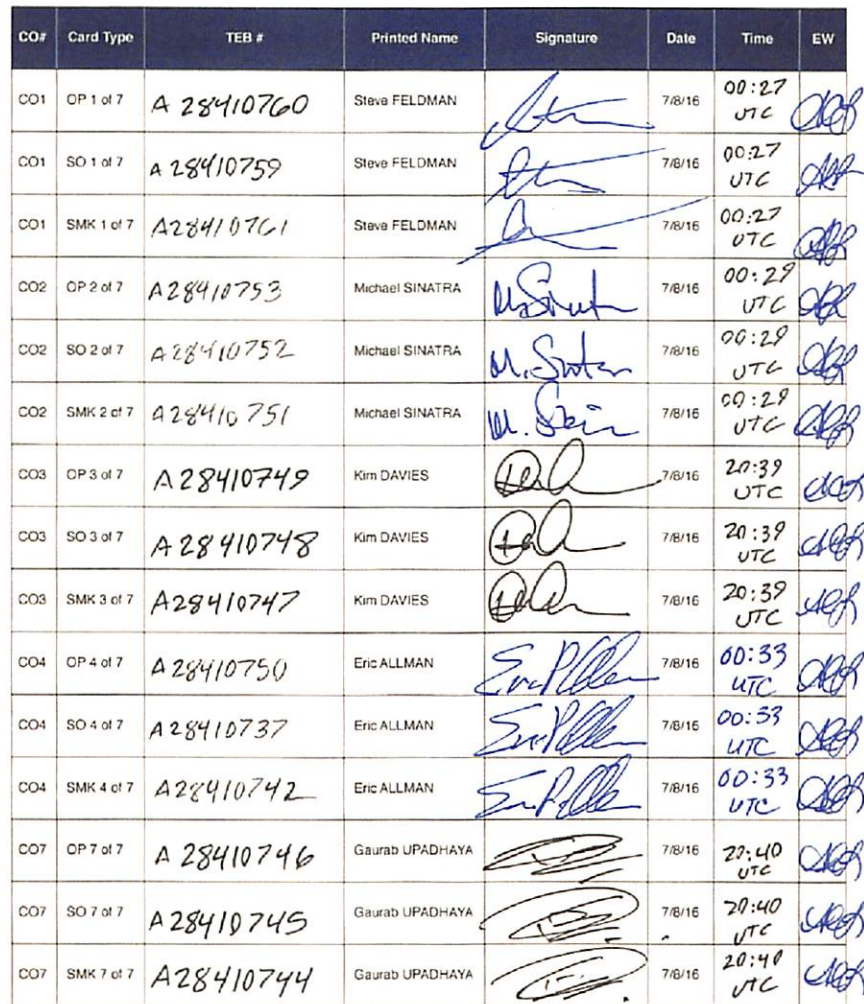 CO# Card Type TEB # Printed Name Signature Date Time EW
CO1 OP 1 of 7 A 28410760 Steve FELDMAN 7/8/16 00:27 UTC
CO1 SO 1 of 7 A 28410759 Steve FELDMAN 7/8/16 00:27 UTC
CO1 SMK 1 of 7 A28410761 Steve FELDMAN 7/8/16 00:27 UTC
CO2 OP 2 of 7 A28410753 Michael SINATRA 7/8/16 00:29 UTC
CO2 SO 2 of 7 A28410752 Michael SINATRA 7/8/16 00:29 UTC
CO2 SMK 2 of 7 A28410751 Michael SINATRA 7/8/16 00:29 UTC
CO3 OP 3 of 7 A28410749 Kim DAVIES 7/8/16 20:39 UTC
CO3 SO 3 of 7 A28410748 Kim DAVIES 7/8/16 20:39 UTC
CO3 SMK 3 of 7 A28410747 Kim DAVIES 7/8/16 20:39 UTC
CO4 OP 4 of 7 A28410750 Eric ALLMAN 7/8/16 00:33 UTC
CO4 SO 4 of 7 A28410737 Eric ALLMAN 7/8/16 00:33 UTC
CO4 SMK 4 of 7 A28410742 Eric ALLMAN 7/8/16 00:33 UTC
CO7 OP 7 of 7 A 28410746 Gaurab UPADHAYA 7/8/16 20:40 UTC
CO7 SO 7 of 7 A28410745 Gaurab UPADHAYA 7/8/16 20:40 UTC
CO7 SMK 7 of 7 A28410744 Gaurab UPADHAYA 7/8/16 20:40 UTC